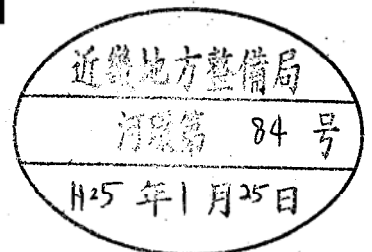 近畿地方整備局
河環第 84 号
H25 年 1 月 25 日